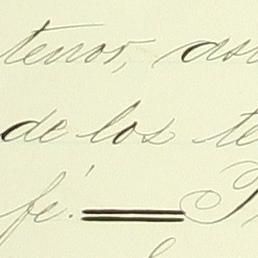 tenor, as
de los te
fé.